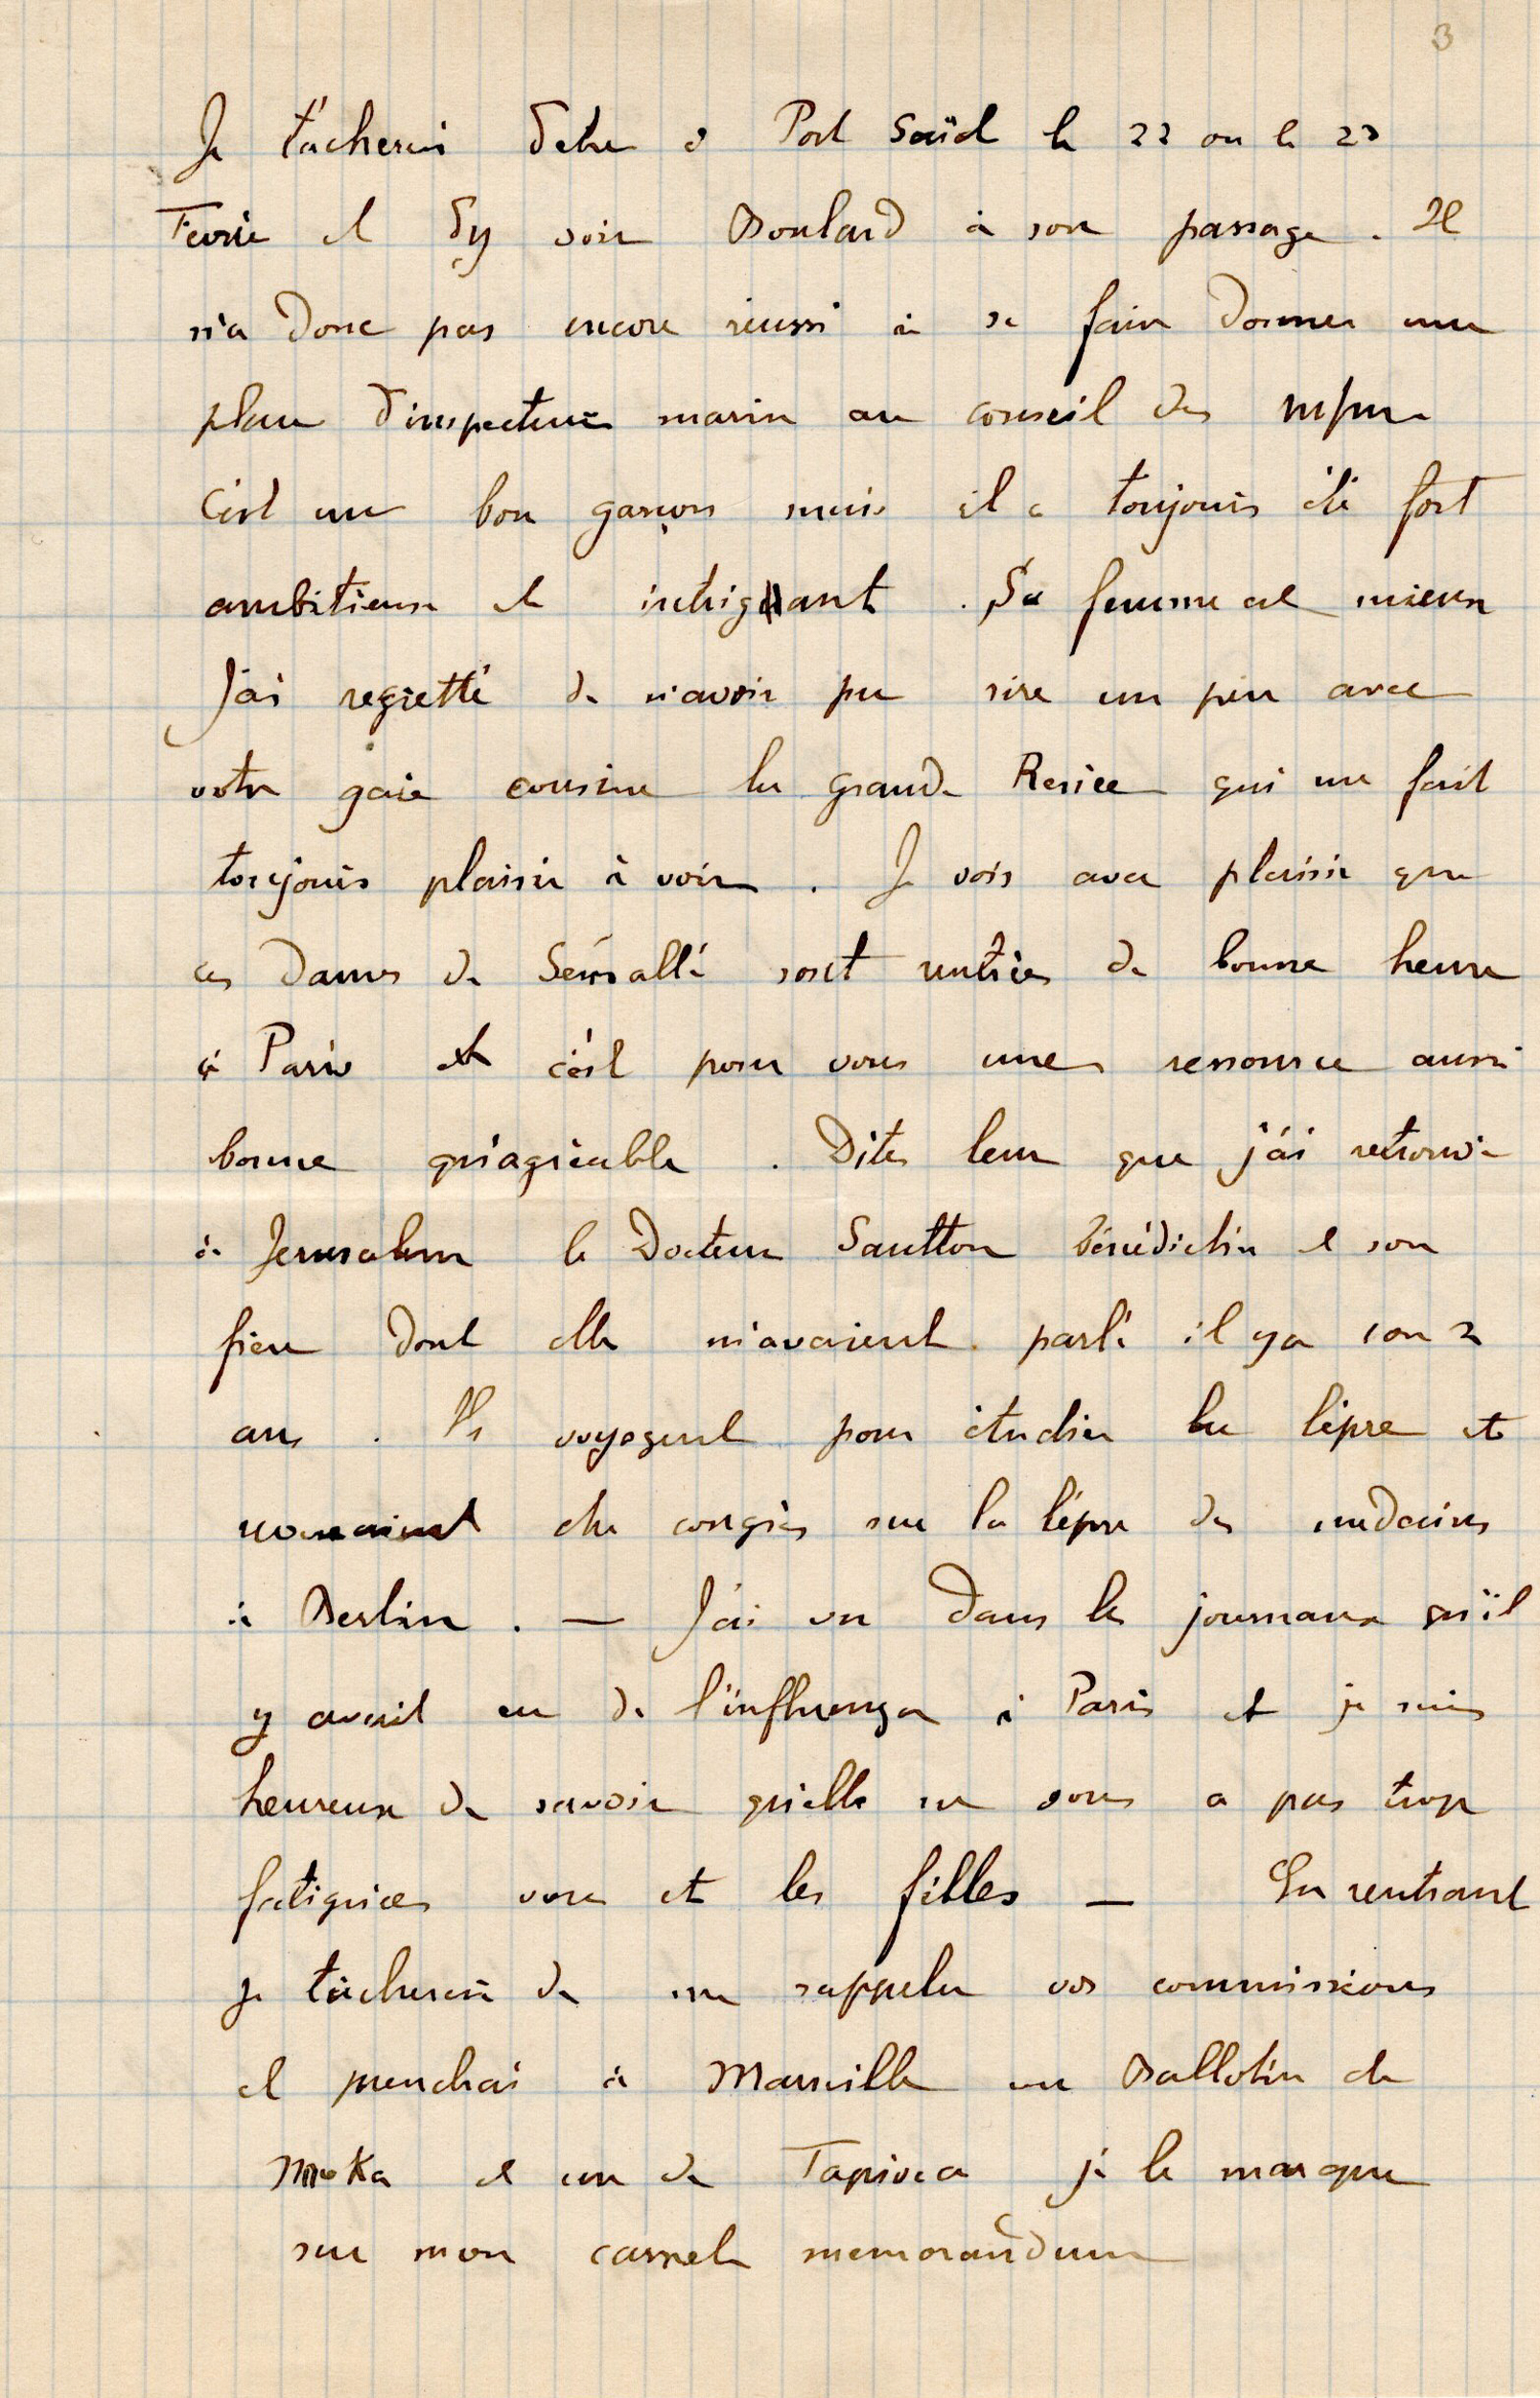 3
Je tacherai d'etre à Port Saïd le 22 ou le 23
Fevrier et d'y voir Boulard à son passage. Il
n'a donc pas encore reussi à se faire donner une
place d'inspecteur marin au conseil des
C'est un bon garçon mais il a toujours été fort
ambitieux et intrigant. Sa femme est mieux
J'ai regretté de n'avoir pu rire un peu avec
votre gaie cousine la grande qui me fait
toujours plaisir à voir. Je vois avec plaisir que
ces Dames de sont rentrées de bonne heure
à Paris et c'est pour vous une ressource aussi
bonne qu'agréable. Dites leur que j'ai retrouvé
à Jerusalem le Docteur Sautton bénédictin et son
frère dont elles m'avaient parlé il y a 1 ou 2
ans. Ils voyagent pour étudier la lèpre et
revenaient du congrès sur la lèpre des medecins
à Berlin. — J'ai vu dans les journaux qu'il
y avait eu de l'influenza à Paris et je suis
heureux de savoir qu'elle ne vous a pas trop
fatiguées vous et les filles — En rentrant
je tâcherai de me rappeler vos commissions
et prendrai à Marseille un Ballotin de
Moka et un de Tapioca je le marque
sur mon carnet memorandum